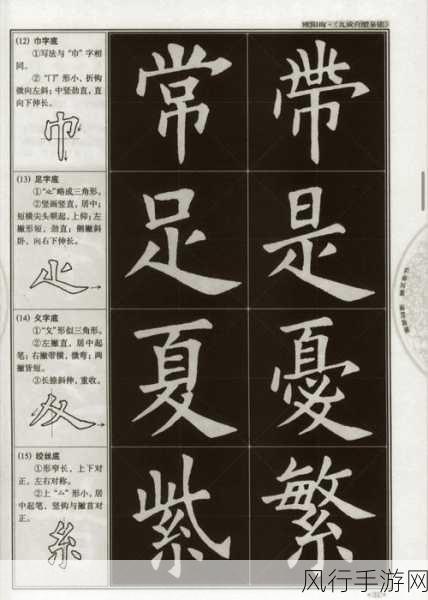 欧阳询·《九成宫醴泉铭》
(12) 巾字底
①写法与“巾”字相
同。
②“冂”形小、折钩
微向左斜；中竖劲直，直
向下伸长。
巾
常 帶
(13) 足字底
①“龰”略成三角形。
②竖画竖直，居中；
短横尖头顿起，上仰；左
撇形短、劲直；侧撇斜
卧、向右下伸长。
足 是
(14) 夂字底
①“夂”形似三角形。
②左撇直，居中起
笔；右撇带横，微弯；两
撇皆短。
③长捺斜伸，重收。
夂
夏 憂
(15) 绞丝底
①形窄长，上下对
正，左右对称。
②上“厶”形小，居
中起笔，竖钩与撇首对
正。
糸
紫 繁
风行手游网